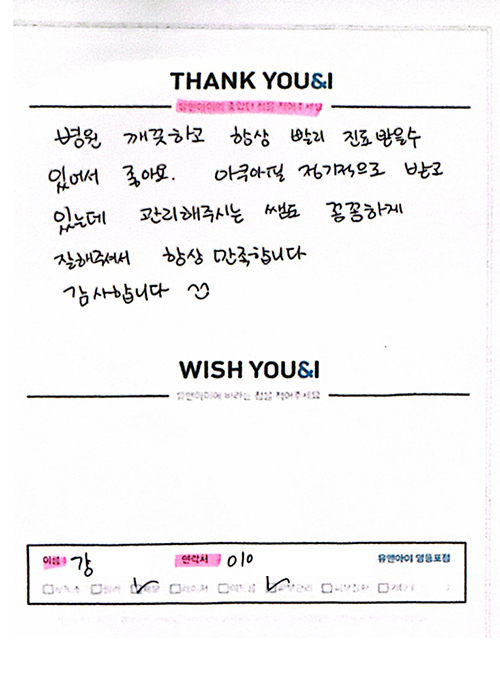 THANK YOU&I
유앤아이의 좋았던 점을 적어주세요
병원 깨끗하고 항상 빡리 진료받을수
있어서 좋아요. 아쿠아필 정기적으로 받고
있는데 관리해주시는 쌤도 꼼꼼하게
잘해주셔서 항상 만족합니다
감사합니다
WISH YOU&I
유앤아이에 바라는 점을 적어주세요
이름 강 연락처 010 유앤아이 영등포점
보톡스 필러 제모 레이저 여드름 피부관리 기타